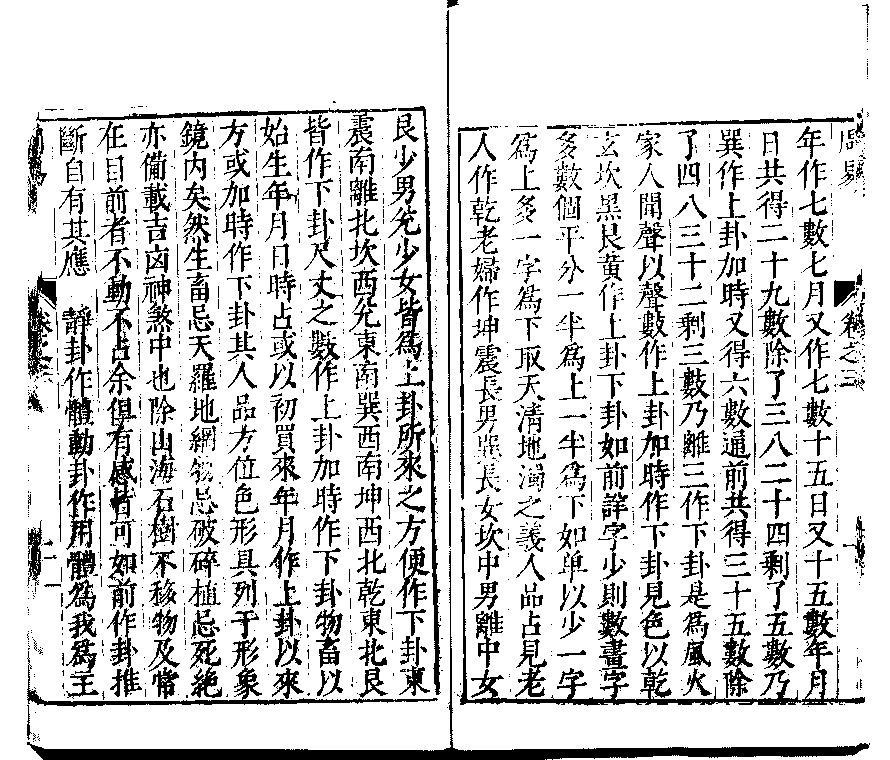 年作七數七月又作七數十五日又十五數年月
日共得二十九數除了三八二十四剩了五數乃
巽作上卦加時又得六數通前共得三十五數除
了四八三十二剩三數乃離三作下卦是為風火
家人聞聲以聲數作上卦加時作下卦見色以乾
玄坎黑艮黃作上卦下卦如前詳字少則數畫字
多數個平分一半為上一半為下如单以少一字
為上多一字為下取天清地濁之義人品占見老
人作乾老婦作坤震長男巽長女坎中男離中女
艮少男兌少女皆為上卦所來之方便作下卦東
震南離北坎西兌東南巽西南坤西北乾東北艮
皆作下卦尺丈之數作上卦加時作下卦物畜以
始生年月日時占或以初買來年月作上卦以來
方或加時作下卦其人品方位色形具列于形象
鏡內矣然生畜忌天羅地網物忌破碎植忌死絕
亦備載吉凶神煞中也除山海石樹不移物及常
在目前者不動不占余但有感皆可如前作卦推
斷自有其應　靜卦作體動卦作用體為我為主
卷之三